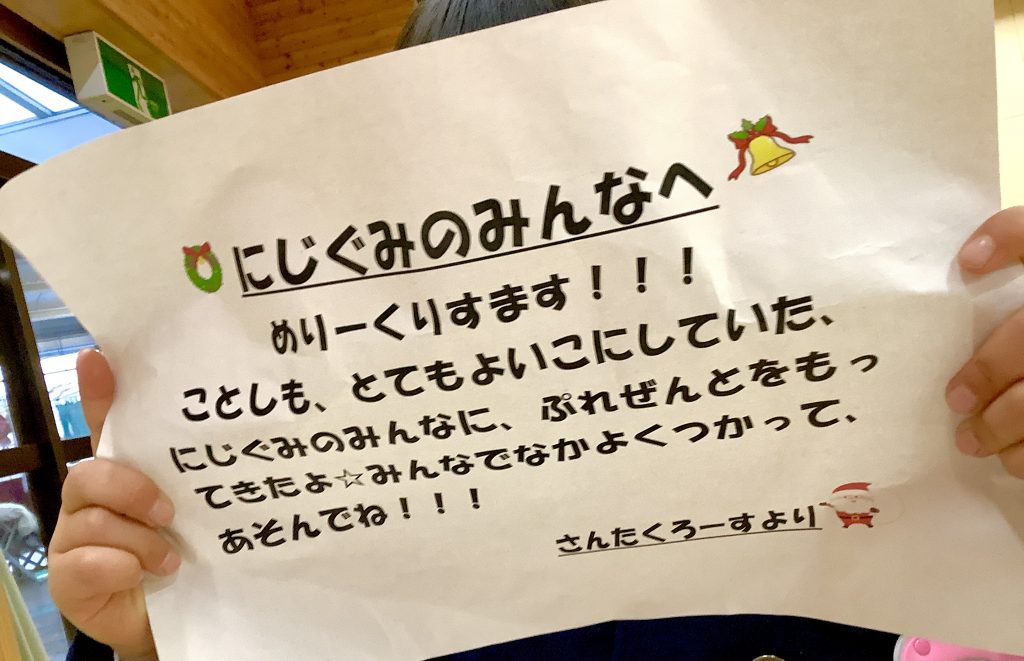 にじぐみのみんなへ
めりーくりすます！！！
ことしも、とてもよいこにしていた、
にじぐみのみんなに、ぷれぜんとをもっ
てきたよ☆みんなでなかよくつかって、
あそんでね！！！
さんたくろーすより